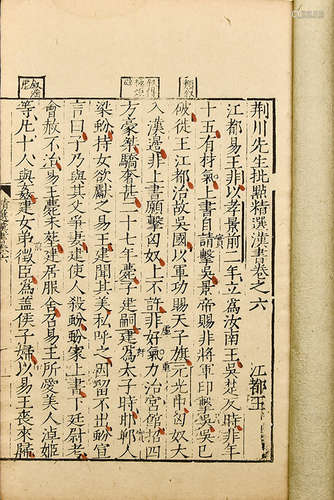 荆川先生批點精選漢書卷之六 江都王
江都易王非以孝景前二年立為汝南王吳楚反時非年
十五有材氣上書自請擊吳景帝賜非將軍印擊吳吳已
破徙王江都治故吳國以軍功賜天子旗元光中匈奴大
入漢邊非上書願擊匈奴上不許非好氣力治宮館招四
方豪桀驕奢甚二十七年薨子建嗣建為太子時邯鄲人
梁蚡持女欲獻之易王建聞其美私呼之因留不出蚡宣
言曰子乃與其父爭妻建使人殺蚡蚡家上書下廷尉考
會赦不治易王薨未葬建居服舍召易王所愛美人淖姬
等凡十人與姦建女弟徵臣為蓋侯子婦以易王喪來歸